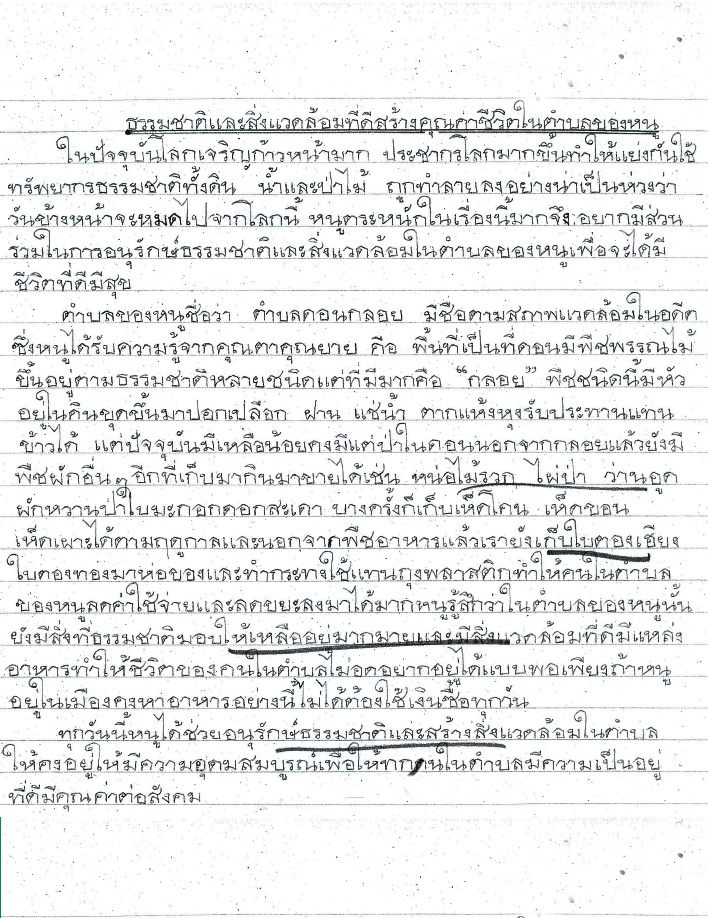 ธรรมชาติและสิ่งแวดล้อมที่ดีสร้างคุณค่าชีวิตในตำบลของหนู
ในปัจจุบันโลกเจริญก้าวหน้ามาก ประชากรโลกมากขึ้นทำให้แย่งกันใช้
ทรัพยากรธรรมชาติทั้งดิน น้ำและป่าไม้ ถูกทำลายลงอย่างน่าเป็นห่วงว่า
วันข้างหน้าจะหมดไปจากโลกนี้ หนูตระหนักในเรื่องนี้มากจึงอยากมีส่วน
ร่วมในการอนุรักษ์ธรรมชาติและสิ่งแวดล้อมในตำบลของหนูเพื่อจะได้มี
ชีวิตที่ดีมีสุข
ตำบลของหนูชื่อว่า ตำบลดอนกลอย มีชื่อตามสภาพแวดล้อมในอดีต
ซึ่งหนูได้รับความรู้จากคุณตาคุณยาย คือ พื้นที่เป็นที่ดอนมีพืชพรรณไม้
ขึ้นอยู่ตามธรรมชาติหลายชนิดแต่ที่มีมากคือ "กลอย" พืชชนิดนี้มีหัว
อยู่ในดินขุดขึ้นมาปอกเปลือก ฝาน แช่น้ำ ตากแห้งหุงรับประทานแทน
ข้าวได้ แต่ปัจจุบันมีเหลือน้อยคงมีแต่ป่าในดอนนอกจากกลอยแล้วยังมี
พืชผักอื่นๆอีกที่เก็บมากินมาขายได้เช่น หน่อไม้รวก ไผ่ป่า ว่านอูด
ผักหวานป่าใบมะกอกดอกสะเดา บางครั้งก็เก็บเห็ดโคน เห็ดขอน
เห็ดเผาะได้ตามฤดูกาลและนอกจากพืชอาหารแล้วเรายังเก็บใบตองเฮียง
ใบตองทองมาห่อของและทำกระทงใช้แทนถุงพลาสติกทำให้คนในตำบล
ของหนูลดค่าใช้จ่ายและลดขยะลงมาได้มากหนูรู้สึกว่าในตำบลของหนูนั้น
ยังมีสิ่งที่ธรรมชาติมอบให้เหลืออยู่มากมายและมีสิ่งแวดล้อมที่ดีมีแหล่ง
อาหารทำให้ชีวิตของคนในตำบลไม่อดอยากอยู่ได้แบบพอเพียงถ้าหนู
อยู่ในเมืองคงหาอาหารอย่างนี้ไม่ได้ต้องใช้เงินซื้อทุกวัน
ทุกวันนี้หนูได้ช่วยอนุรักษ์ธรรมชาติและสร้างสิ่งแวดล้อมในตำบล
ให้คงอยู่ให้มีความอุดมสมบูรณ์เพื่อให้ทุกคนในตำบลมีความเป็นอยู่
ที่ดีมีคุณค่าต่อสังคม